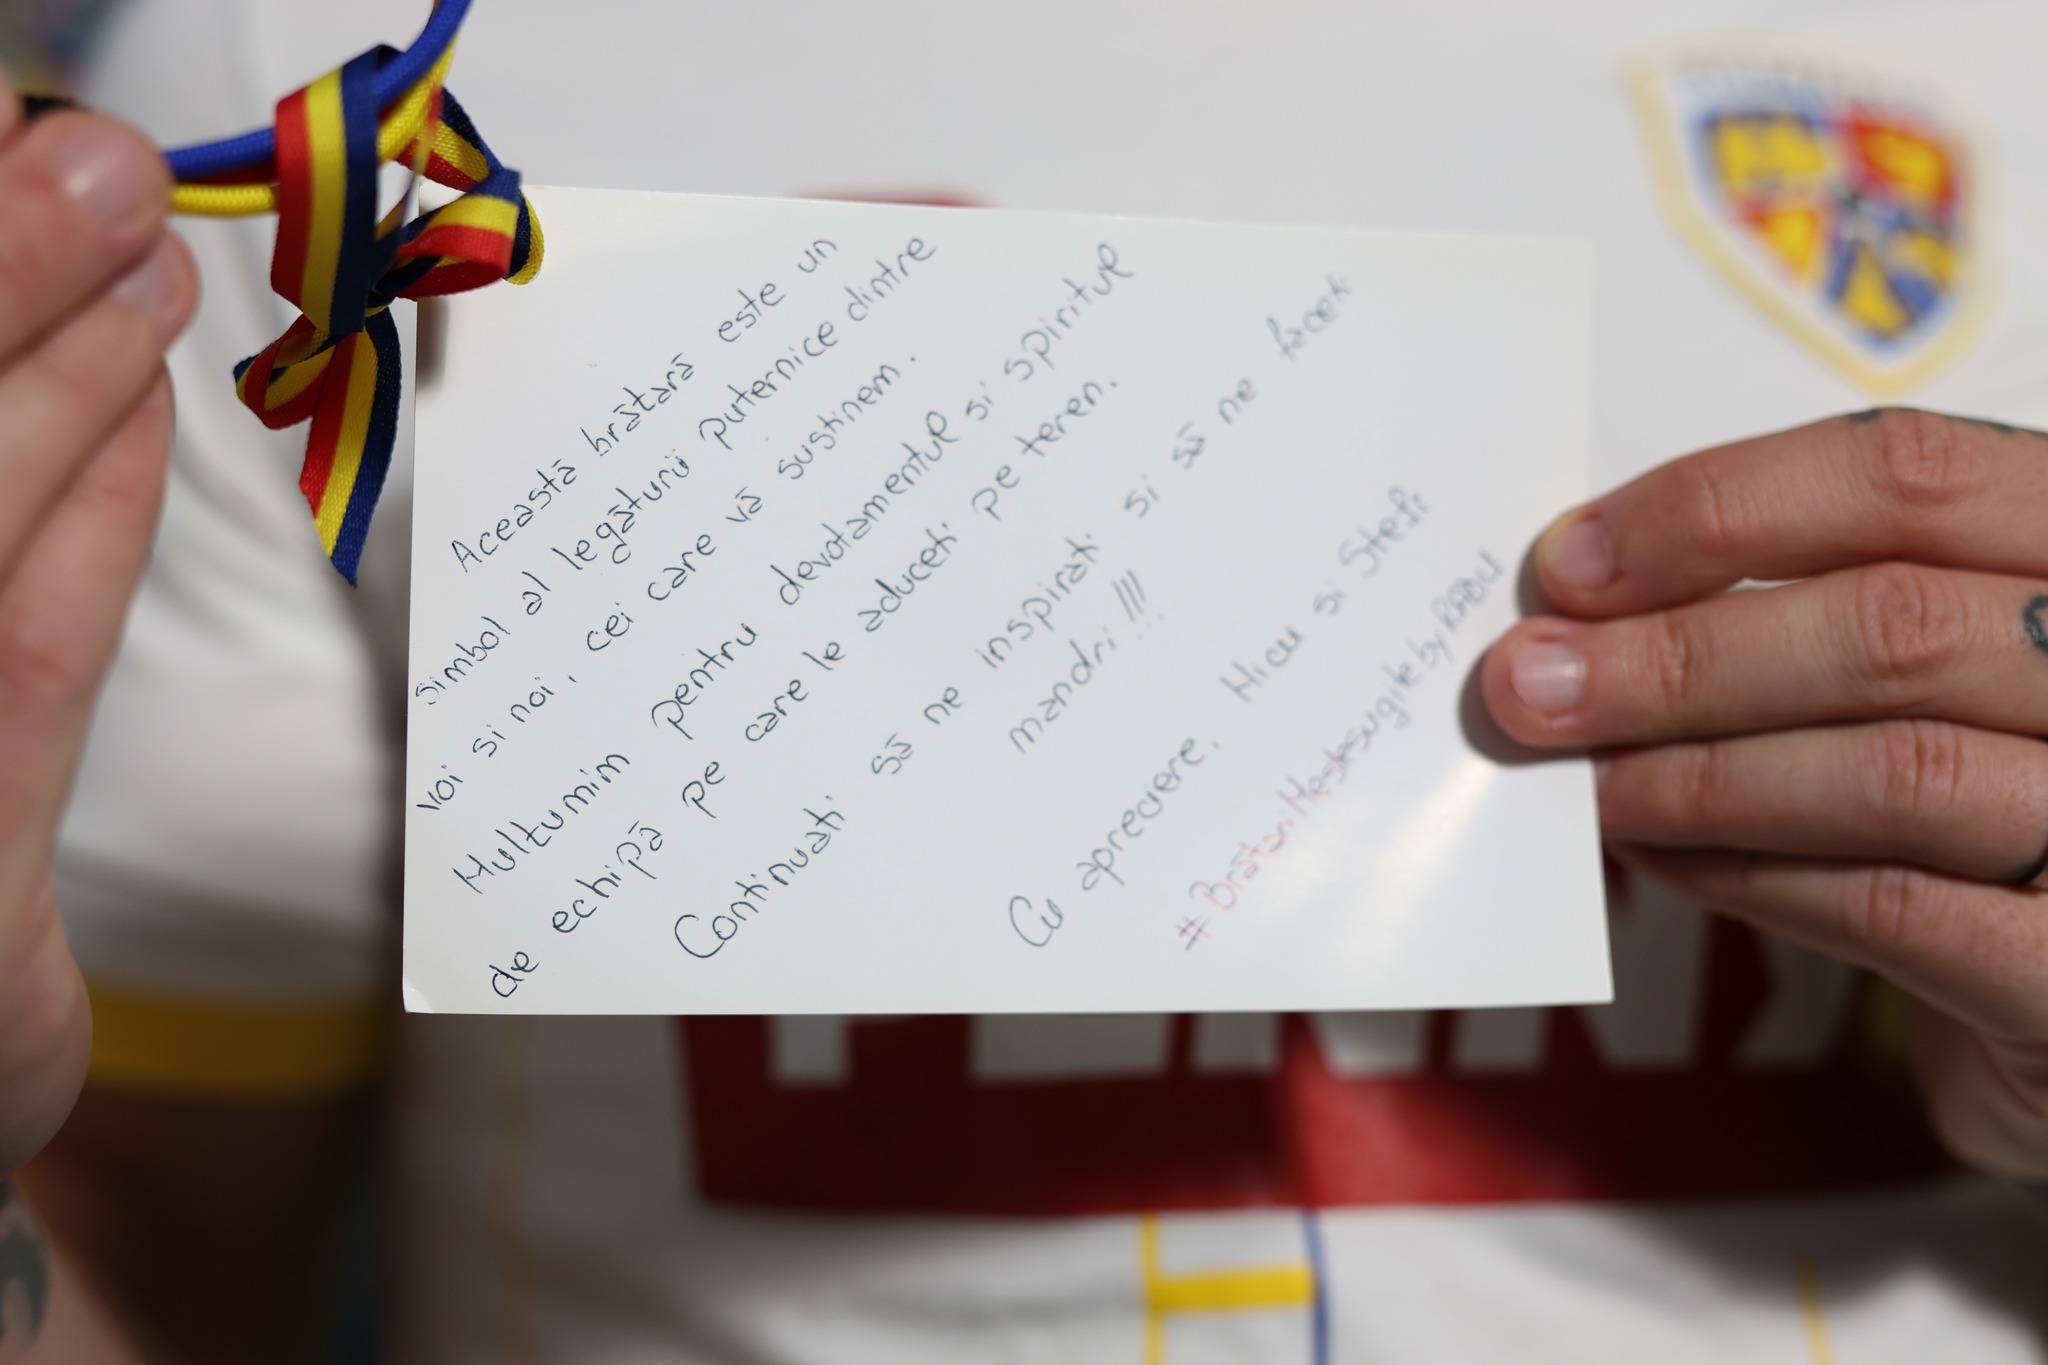 Această brătară este un
simbol al legăturii puternice dintre
voi si noi, cei care vă sustinem.
Multumim pentru devotamentul si spiritul
de echipă pe care le aduceti pe teren.
Continuati să ne inspirati si să ne faceti
mandri!!!
Cu apreciere. Nicu si Stefi
#BrătariMestesugite by RADU